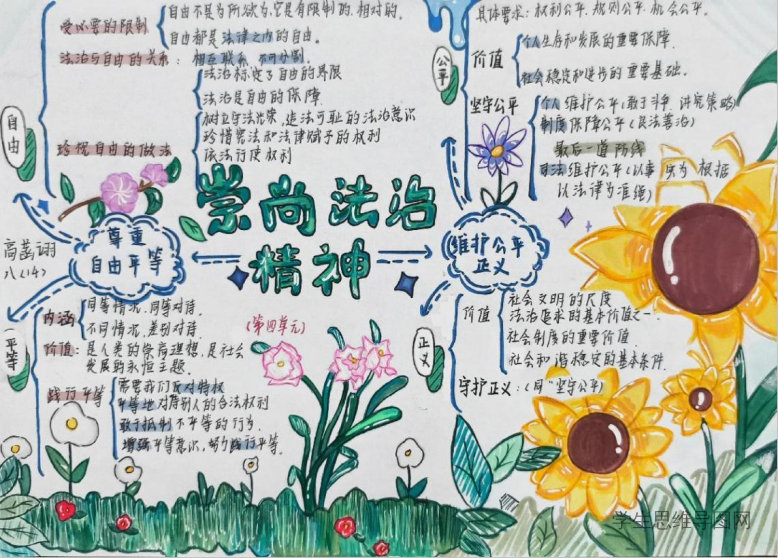 崇尚法治
精神
(第四单元)
高菡诩
八(14)
尊重
自由平等
自由
受必要的限制
自由不是为所欲为,它是有限制的、相对的。
自由都是法律之内的自由。
法治与自由的关系:相互联系 不可分割。
珍视自由的做法
法治标定了自由的界限
法治是自由的保障
树立守法光荣、违法可耻的法治意识
珍惜宪法和法律赋予的权利
依法行使权利
平等
内涵
同等情况,同等对待。
不同情况,差别对待。
价值:是人类的崇高理想,是社会
发展的永恒主题。
践行平等
需要我们反对特权
平等地对待别人的合法权利
敢于抵制不平等的行为
增强平等意识,努力践行平等。
维护公平
正义
公平
具体要求:权利公平、规则公平、机会公平。
价值
个人生存和发展的重要保障。
社会稳定和进步的重要基础。
坚守公平
个人维护公平(敢于斗争 讲究策略)
制度保障公平(良法善治)
最后一道防线
司法维护公平(以事实为根据
以法律为准绳)
正义
价值
社会文明的尺度
法治追求的基本价值之一
社会制度的重要价值
社会和谐稳定的基本条件
守护正义:(同"坚守公平)
学生思维导图网